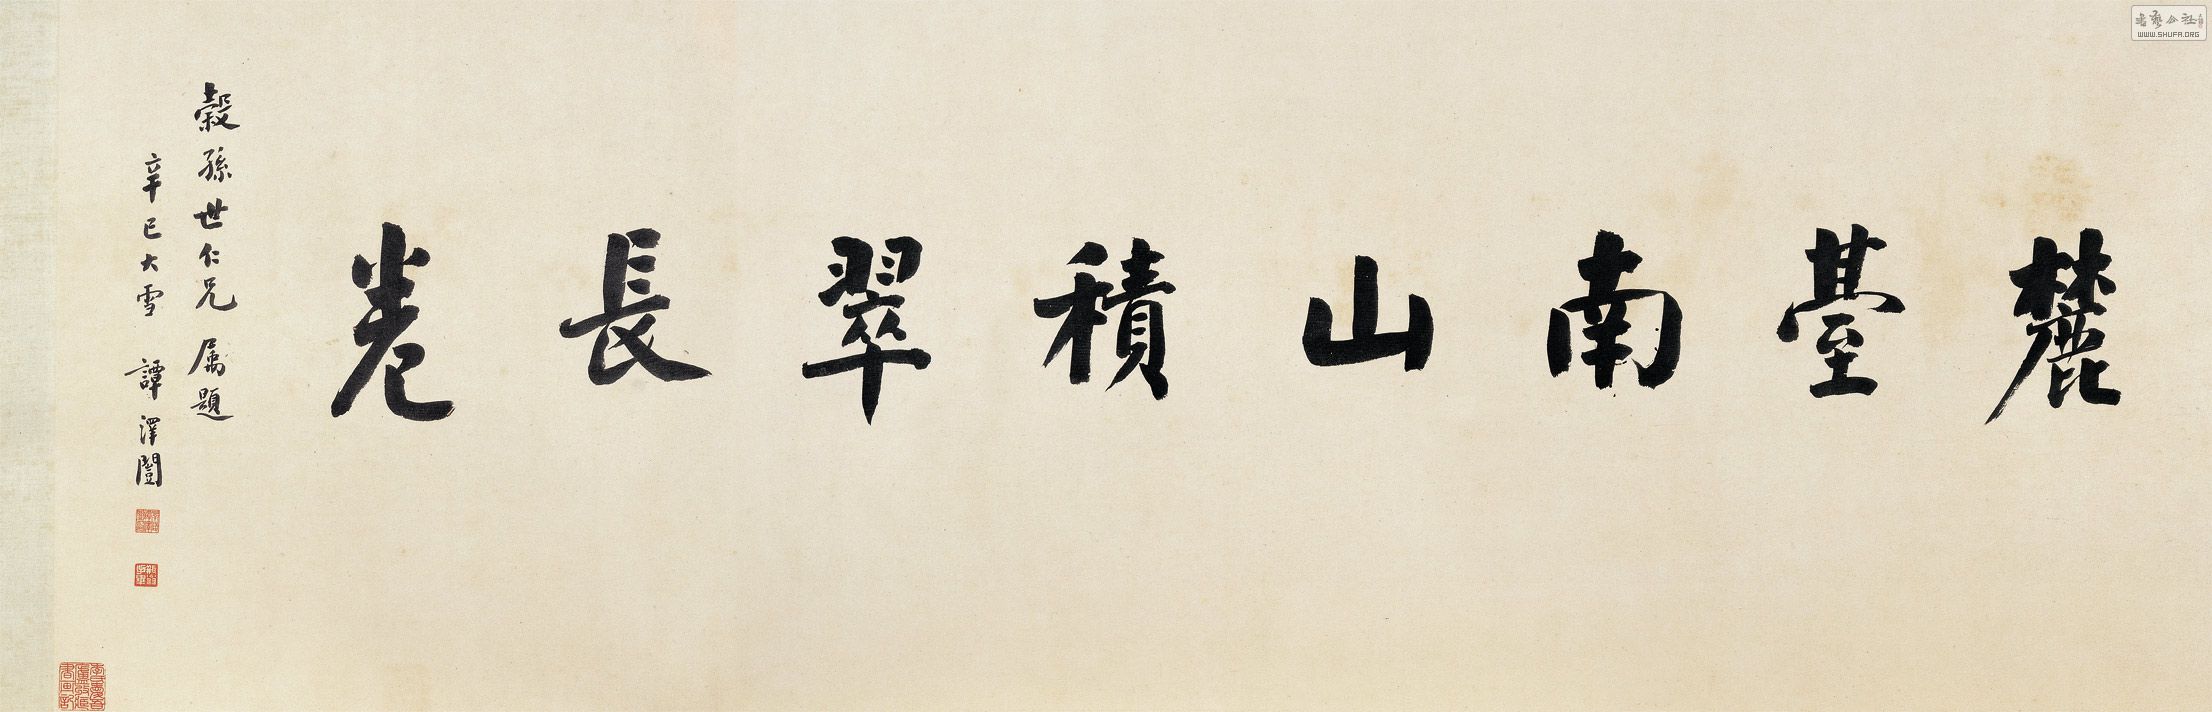 麓臺南山積翠長卷
穀孫世仁兄屬題
辛巳大雪 譚澤闓
書藝公社
WWW.SHUFA.ORG